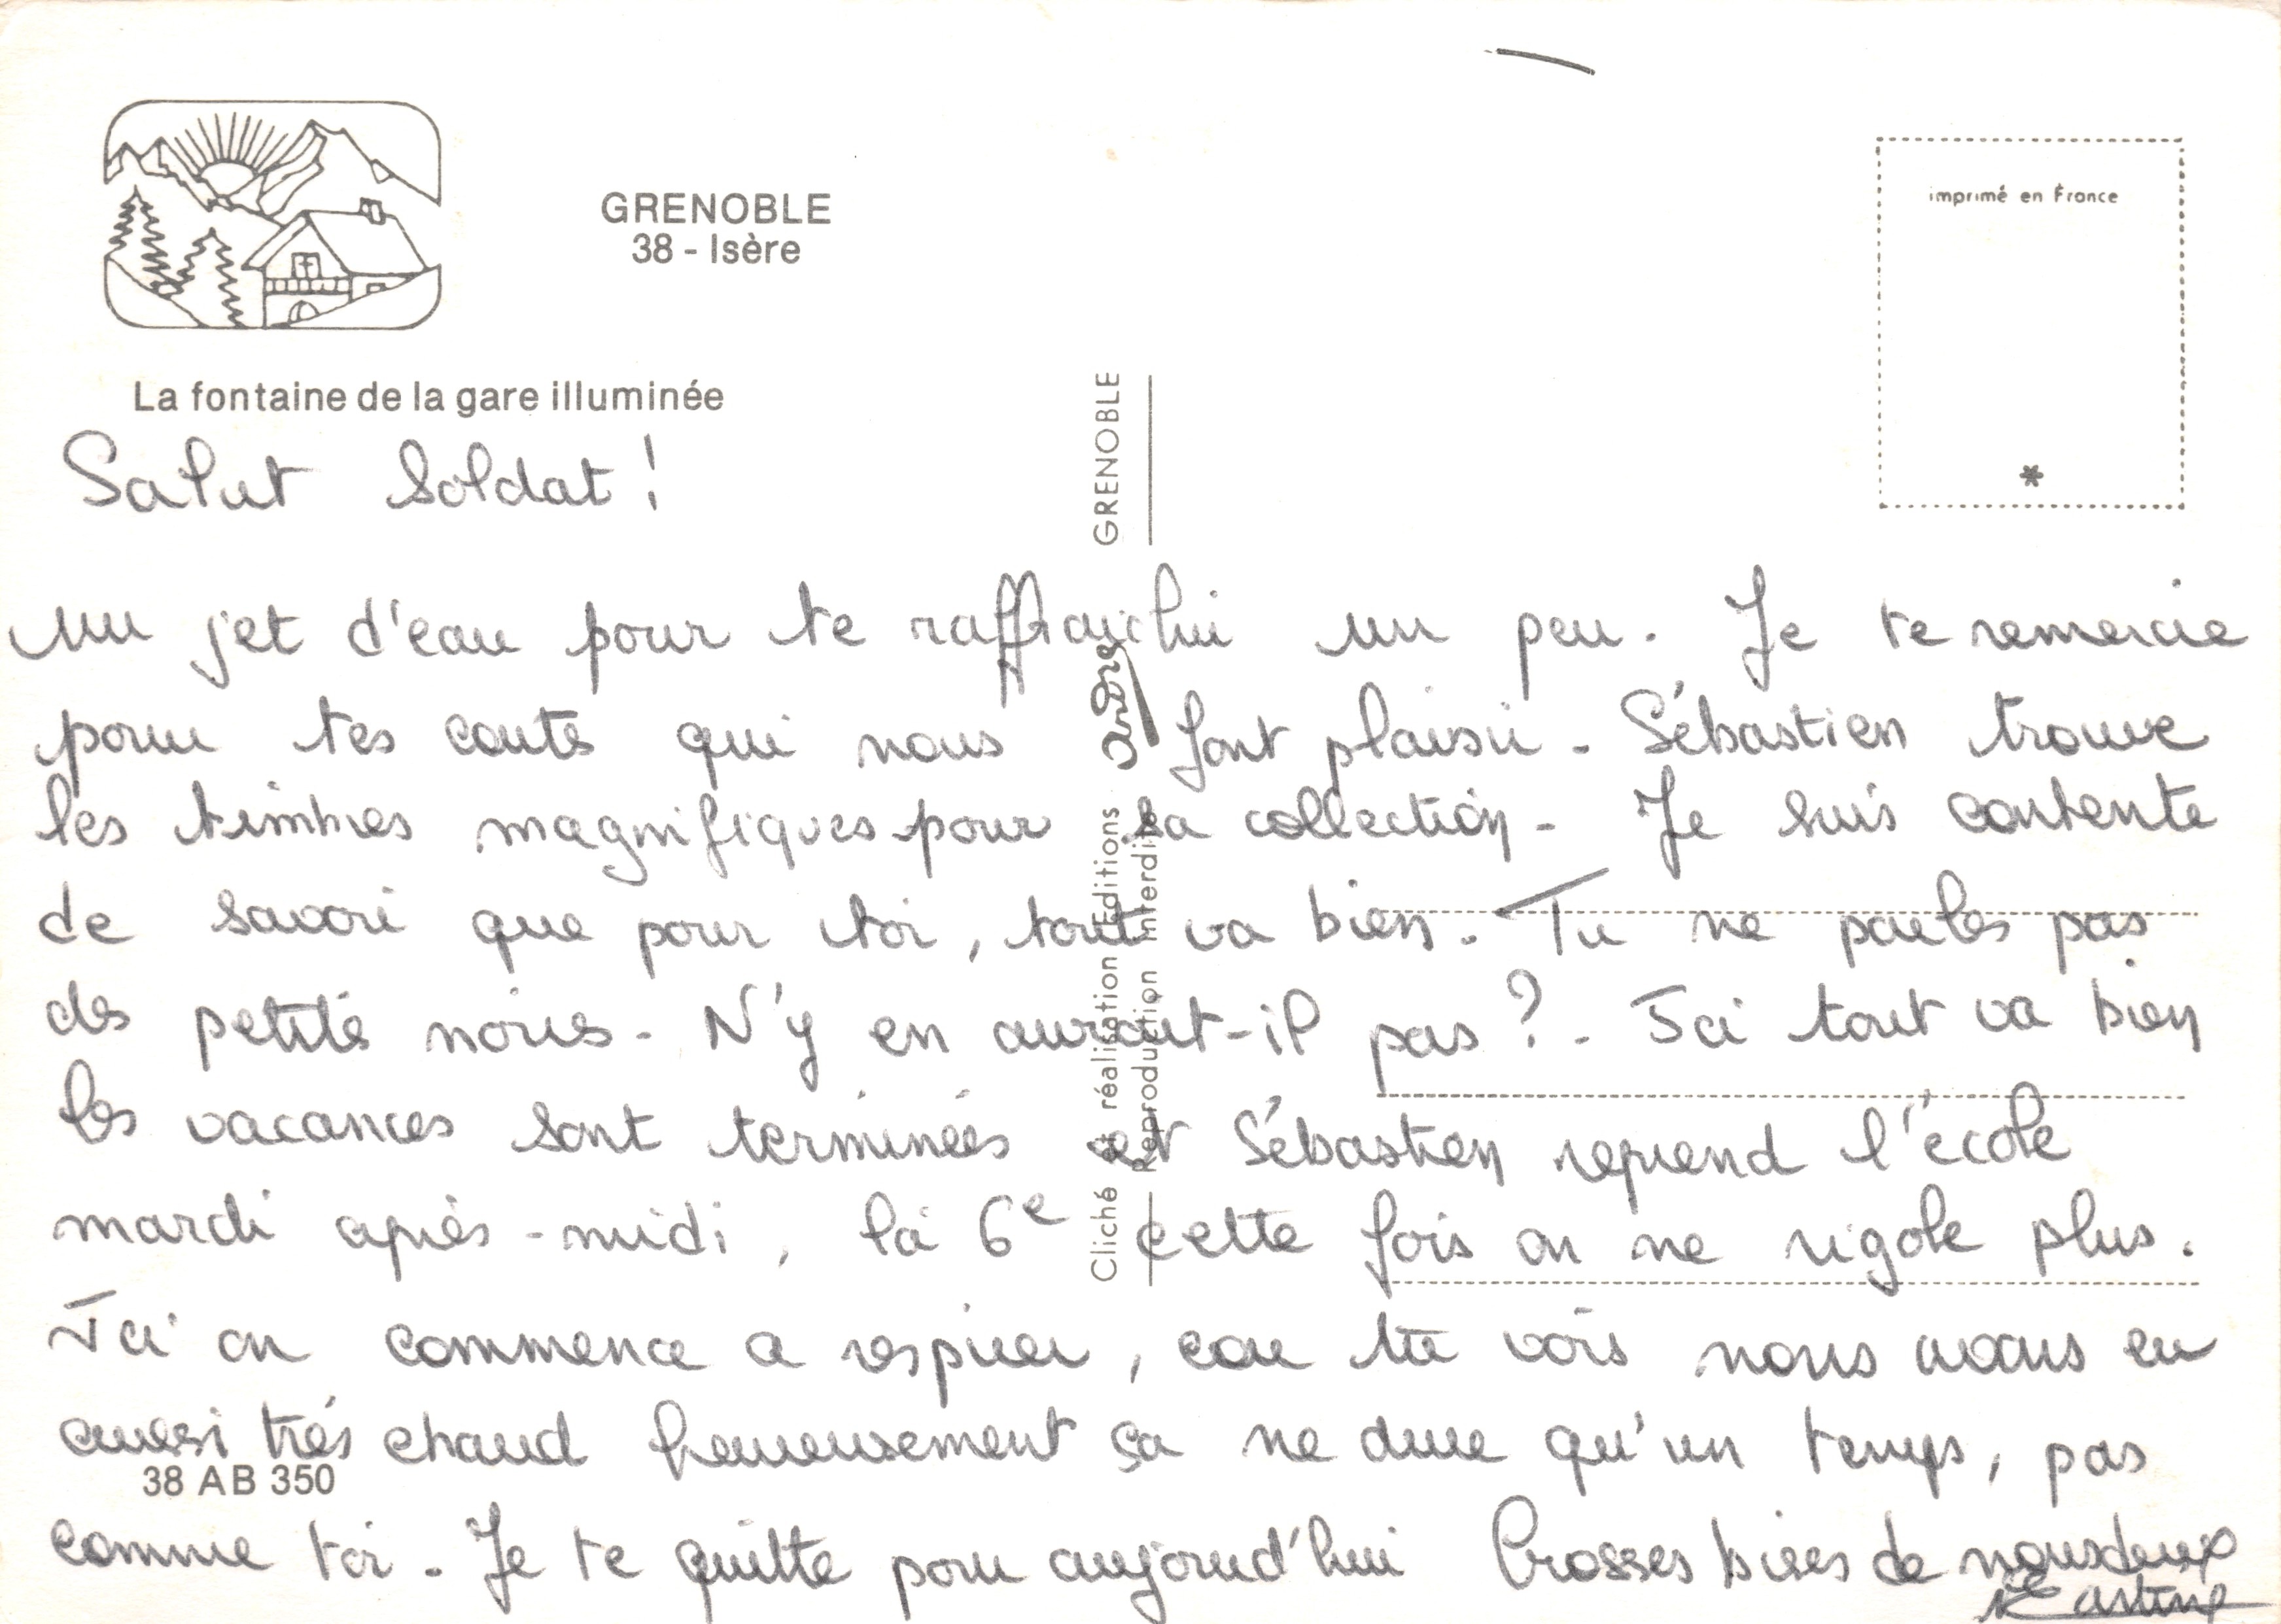 GRENOBLE
38 - Isère
imprimé en France
*
La fontaine de la gare illuminée
Salut Soldat !
Un jet d'eau pour te raffraichir un peu. Je te remercie
pour tes cartes qui nous font plaisir - Sébastien trouve
les timbres magnifiques pour sa collection - Je suis contente
de savoir que pour toi, tout va bien. Tu ne parles pas
des petites noires - N'y en aurait-il pas ? - Ici tout va bien
les vacances sont terminées et Sébastien reprend l'école
mardi après-midi, la 6e cette fois on ne rigole plus.
Ici on commence a respirer, car tu vois nous avons eu
aussi très chaud heureusement ça ne dure qu'un temps, pas
38 AB 350
comme toi - Je te quitte pour aujourd'hui Grosses bises de nous deux
Cliché et réalisation Editions André GRENOBLE
Reproduction interdite